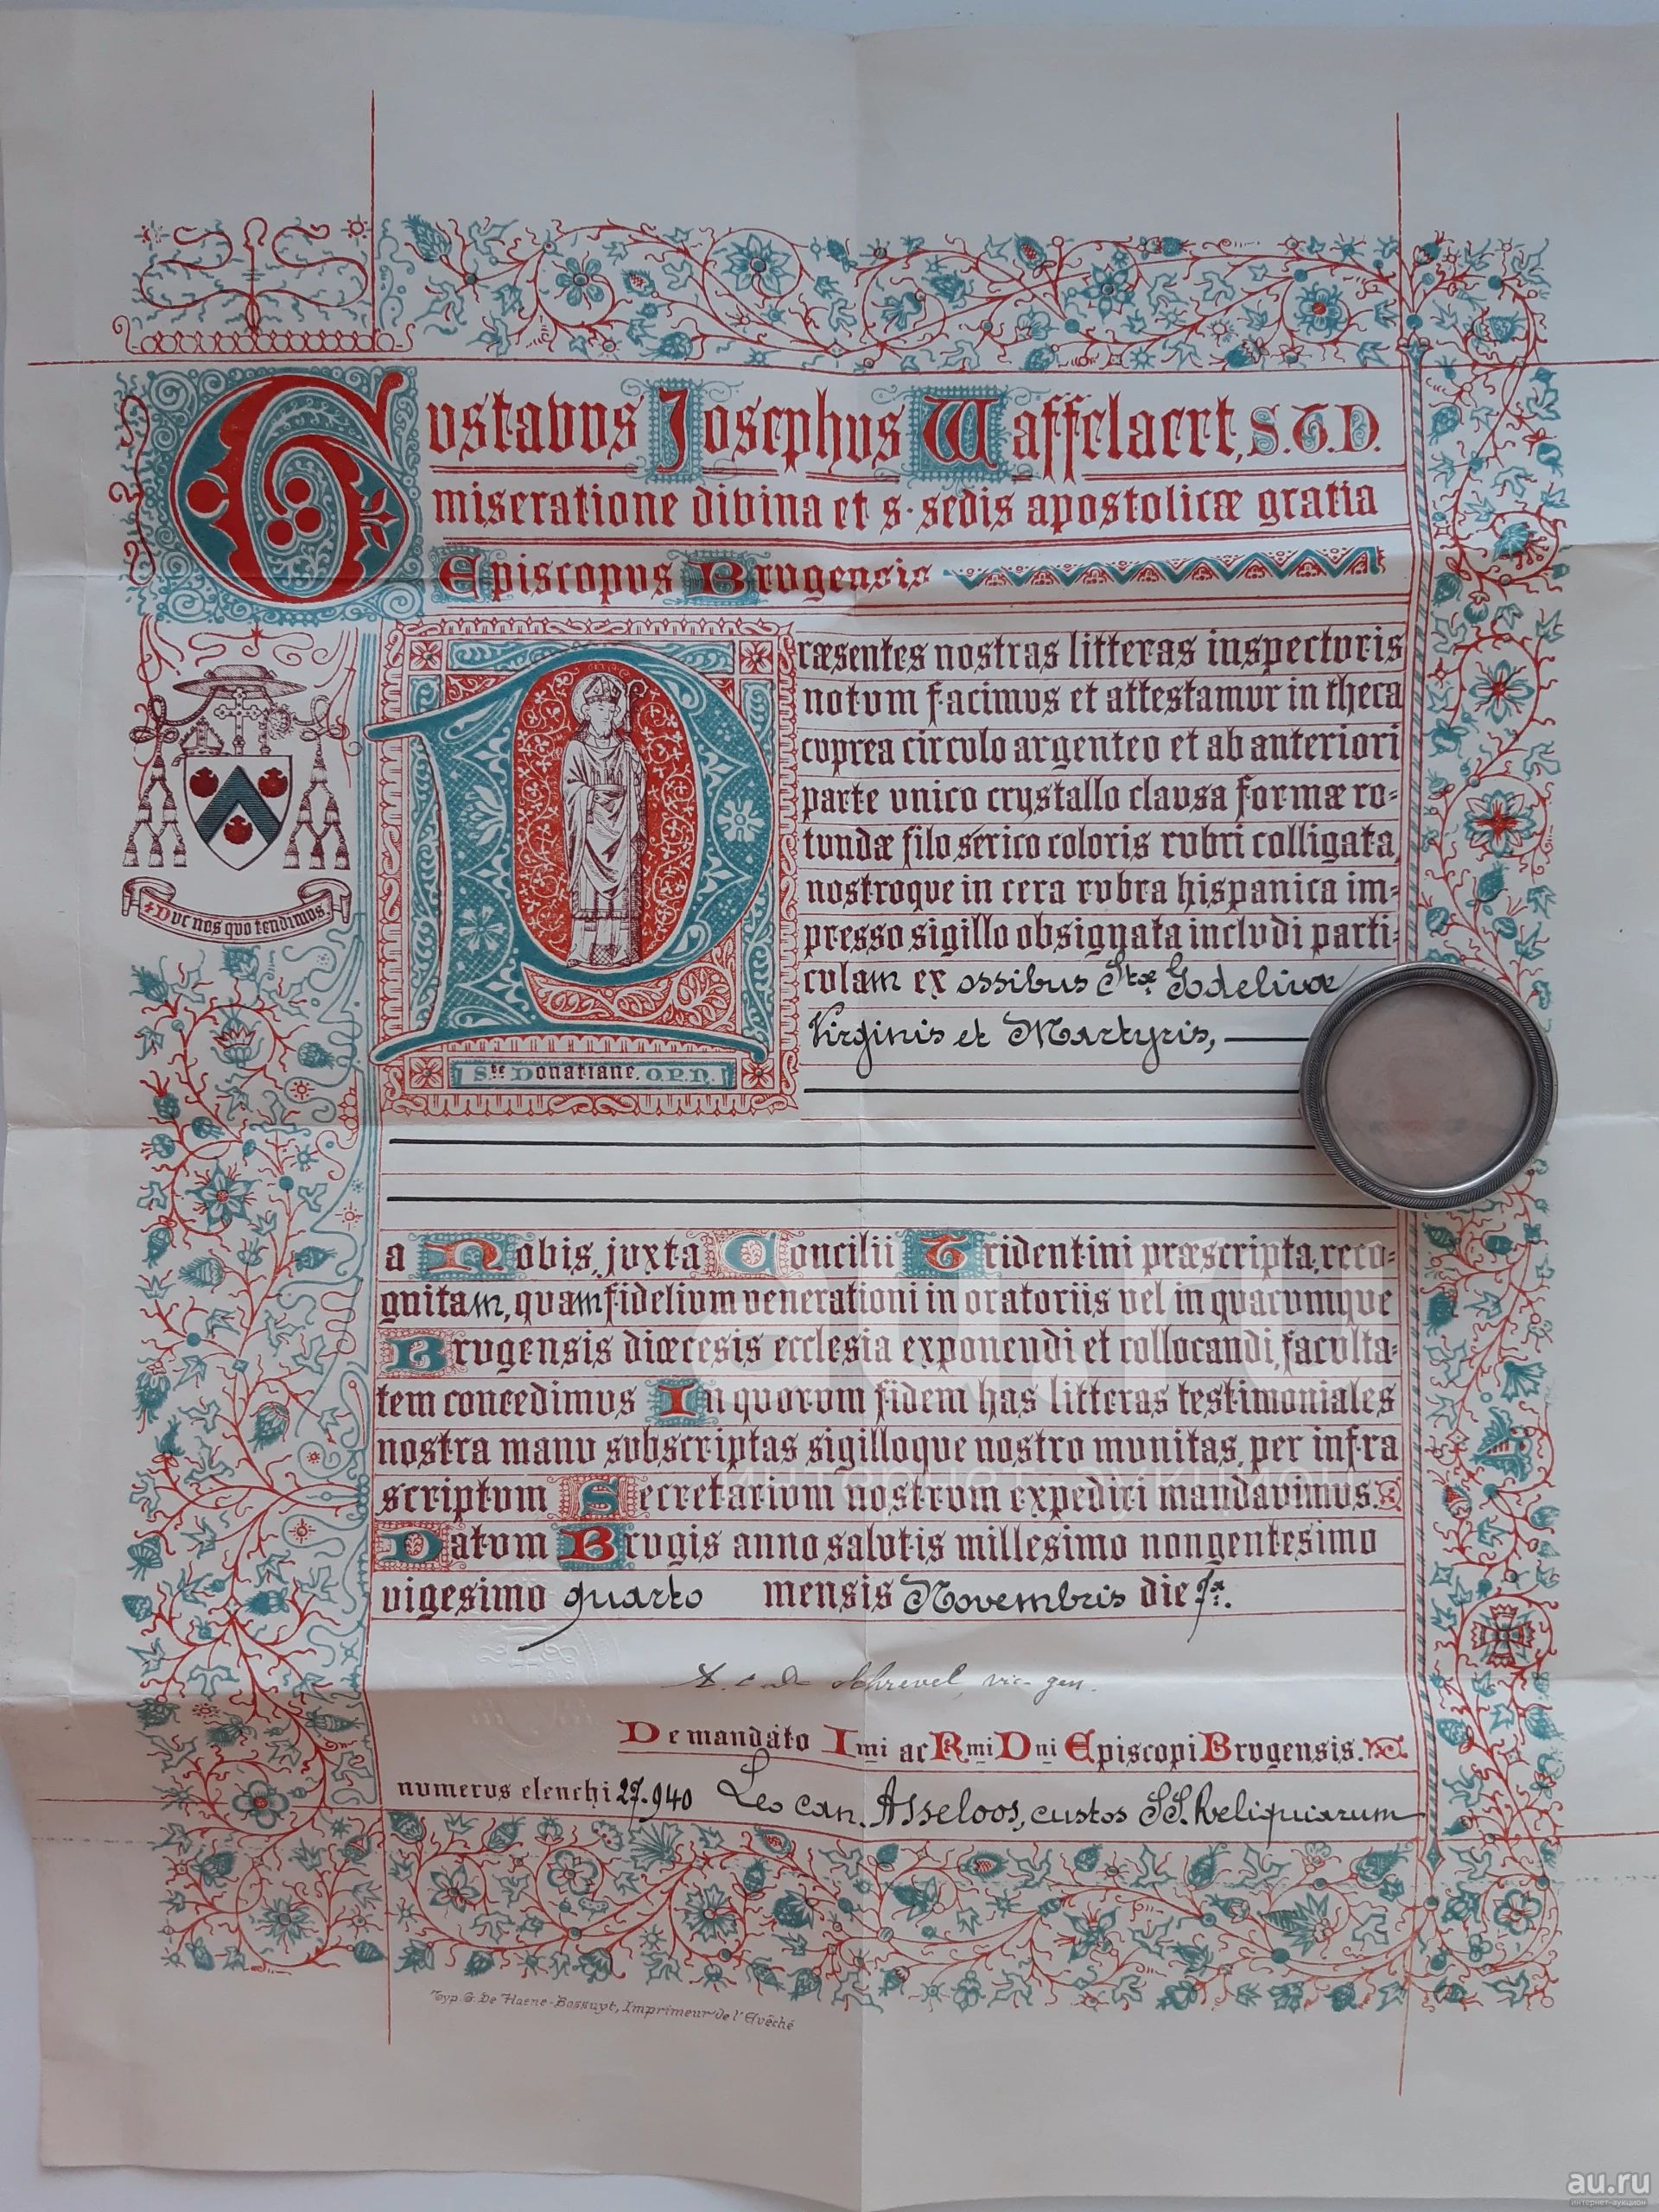 Gustavus Josephus Waffelaert, S.T.D.
miseratione divina et s. sedis apostolicæ gratia
Episcopus Brugensis
Præsentes nostras litteras inspecturis
notum facimus et attestamur in theca
cuprea circulo argenteo et ab anteriori
parte unico crystallo clausa formæ ro-
tundæ filo serico coloris rubri colligata,
nostroque in cera rubra hispanica im-
presso sigillo obsignata includi parti-
culam ex ossibus Stæ Godelivæ
Virginis et Martyris,
Duc nos quo tendimus.
Ste Donatiane. O.P.N.
a Nobis, juxta Concilii Tridentini præscripta, reco-
gnitam, quam fidelium venerationi in oratoriis vel in quacumque
Brugensis diœcesis ecclesia exponendi et collocandi, faculta-
tem concedimus In quorum fidem has litteras testimoniales
nostra manu subscriptas sigilloque nostro munitas, per infra
scriptum Secretarium nostrum expediri mandavimus.
Datum Brugis anno salutis millesimo nongentesimo
vigesimo quarto mensis Novembris die 7a.
Schrevel, vic. gen.
De mandato Imi ac Rmi Dni Episcopi Brugensis.
numerus elenchi 27.940 Leo can. Asseloos, custos SS. Reliquiarum
Typ. G. De Haene-Bossuyt, Imprimeur de l'Evêché
au.ru
интернет-аукцион
au.ru
интернет-аукцион